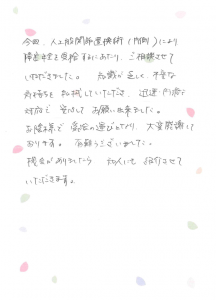 今回、人工股関節置換術(両側)により
障害年金を受給するにあたり、ご相談させて
いただきました。 知識が乏しく、不安な
気持ちを払拭していただき、迅速・円滑に
対応で、安心してお願い出来ました。
お陰様で受給の運びとなり、大変感謝して
おります。 有難うございました。
機会がありましたら 知人にも紹介させて
いただきます。